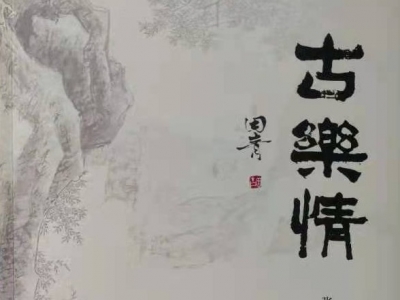 古樂情
田青